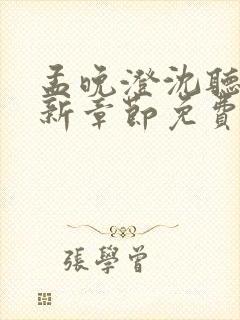 孟晚澄沈聽
新章節免費
張學曾